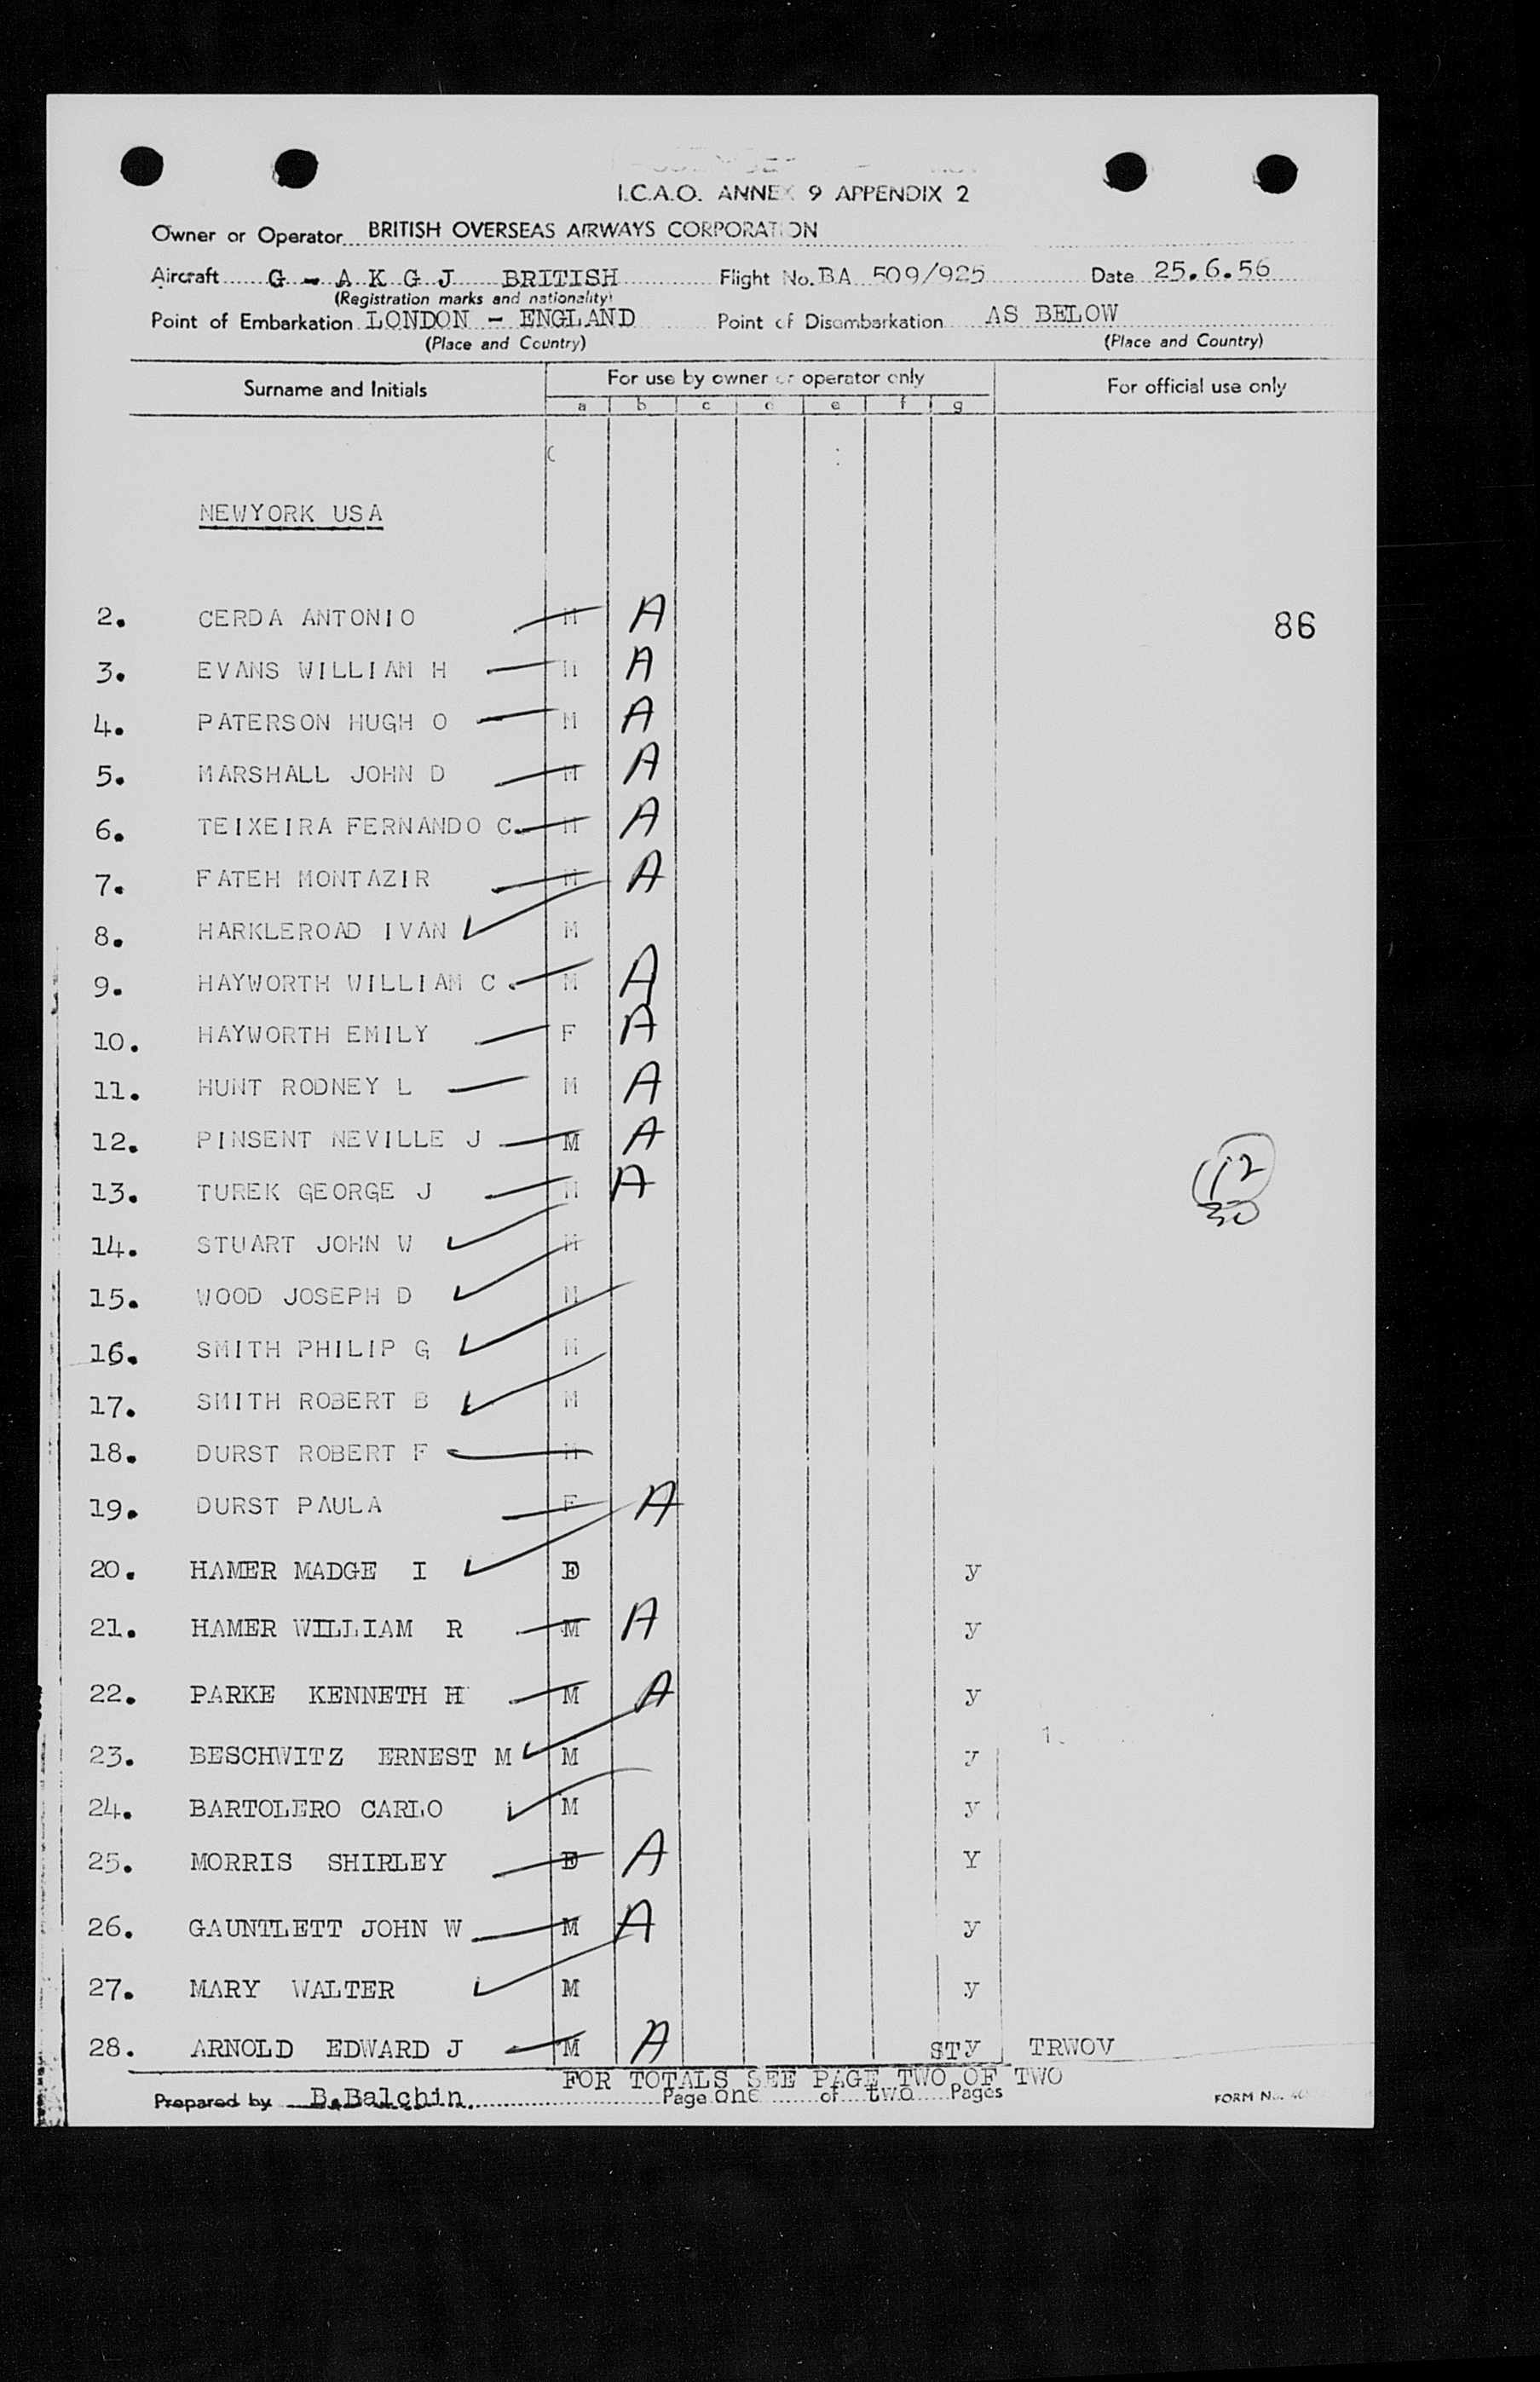 I.C.A.O. ANNEX 9 APPENDIX 2
Owner or Operator BRITISH OVERSEAS AIRWAYS CORPORATION
Aircraft G - A K G J BRITISH Flight No. BA 509/925 Date 25.6.56
(Registration marks and nationality)
Point of Embarkation LONDON - ENGLAND Point of Disembarkation AS BELOW
(Place and Country) (Place and Country)
Surname and Initials For use by owner or operator only For official use only
a b c d e f g
NEWYORK USA
2. CERDA ANTONIO M A 86
3. EVANS WILLIAM H M A
4. PATERSON HUGH O M A
5. MARSHALL JOHN D M A
6. TEIXEIRA FERNANDO C. M A
7. FATEH MONTAZIR M A
8. HARKLEROAD IVAN M
9. HAYWORTH WILLIAM C. M A
10. HAYWORTH EMILY F A
11. HUNT RODNEY L M A
12. PINSENT NEVILLE J M A
12
13. TUREK GEORGE J M A
30
14. STUART JOHN W M
15. WOOD JOSEPH D M
16. SMITH PHILIP G M
17. SMITH ROBERT B M
18. DURST ROBERT F M
19. DURST PAULA F A
20. HAMER MADGE I F y
21. HAMER WILLIAM R M A y
22. PARKE KENNETH H M A y
23. BESCHWITZ ERNEST M M y
24. BARTOLERO CARLO M y
25. MORRIS SHIRLEY F A Y
26. GAUNTLETT JOHN W M A y
27. MARY WALTER M y
28. ARNOLD EDWARD J M A STy TRWOV
FOR TOTALS SEE PAGE TWO OF TWO
Prepared by B.Balchin. Page one of two Pages FORM No.